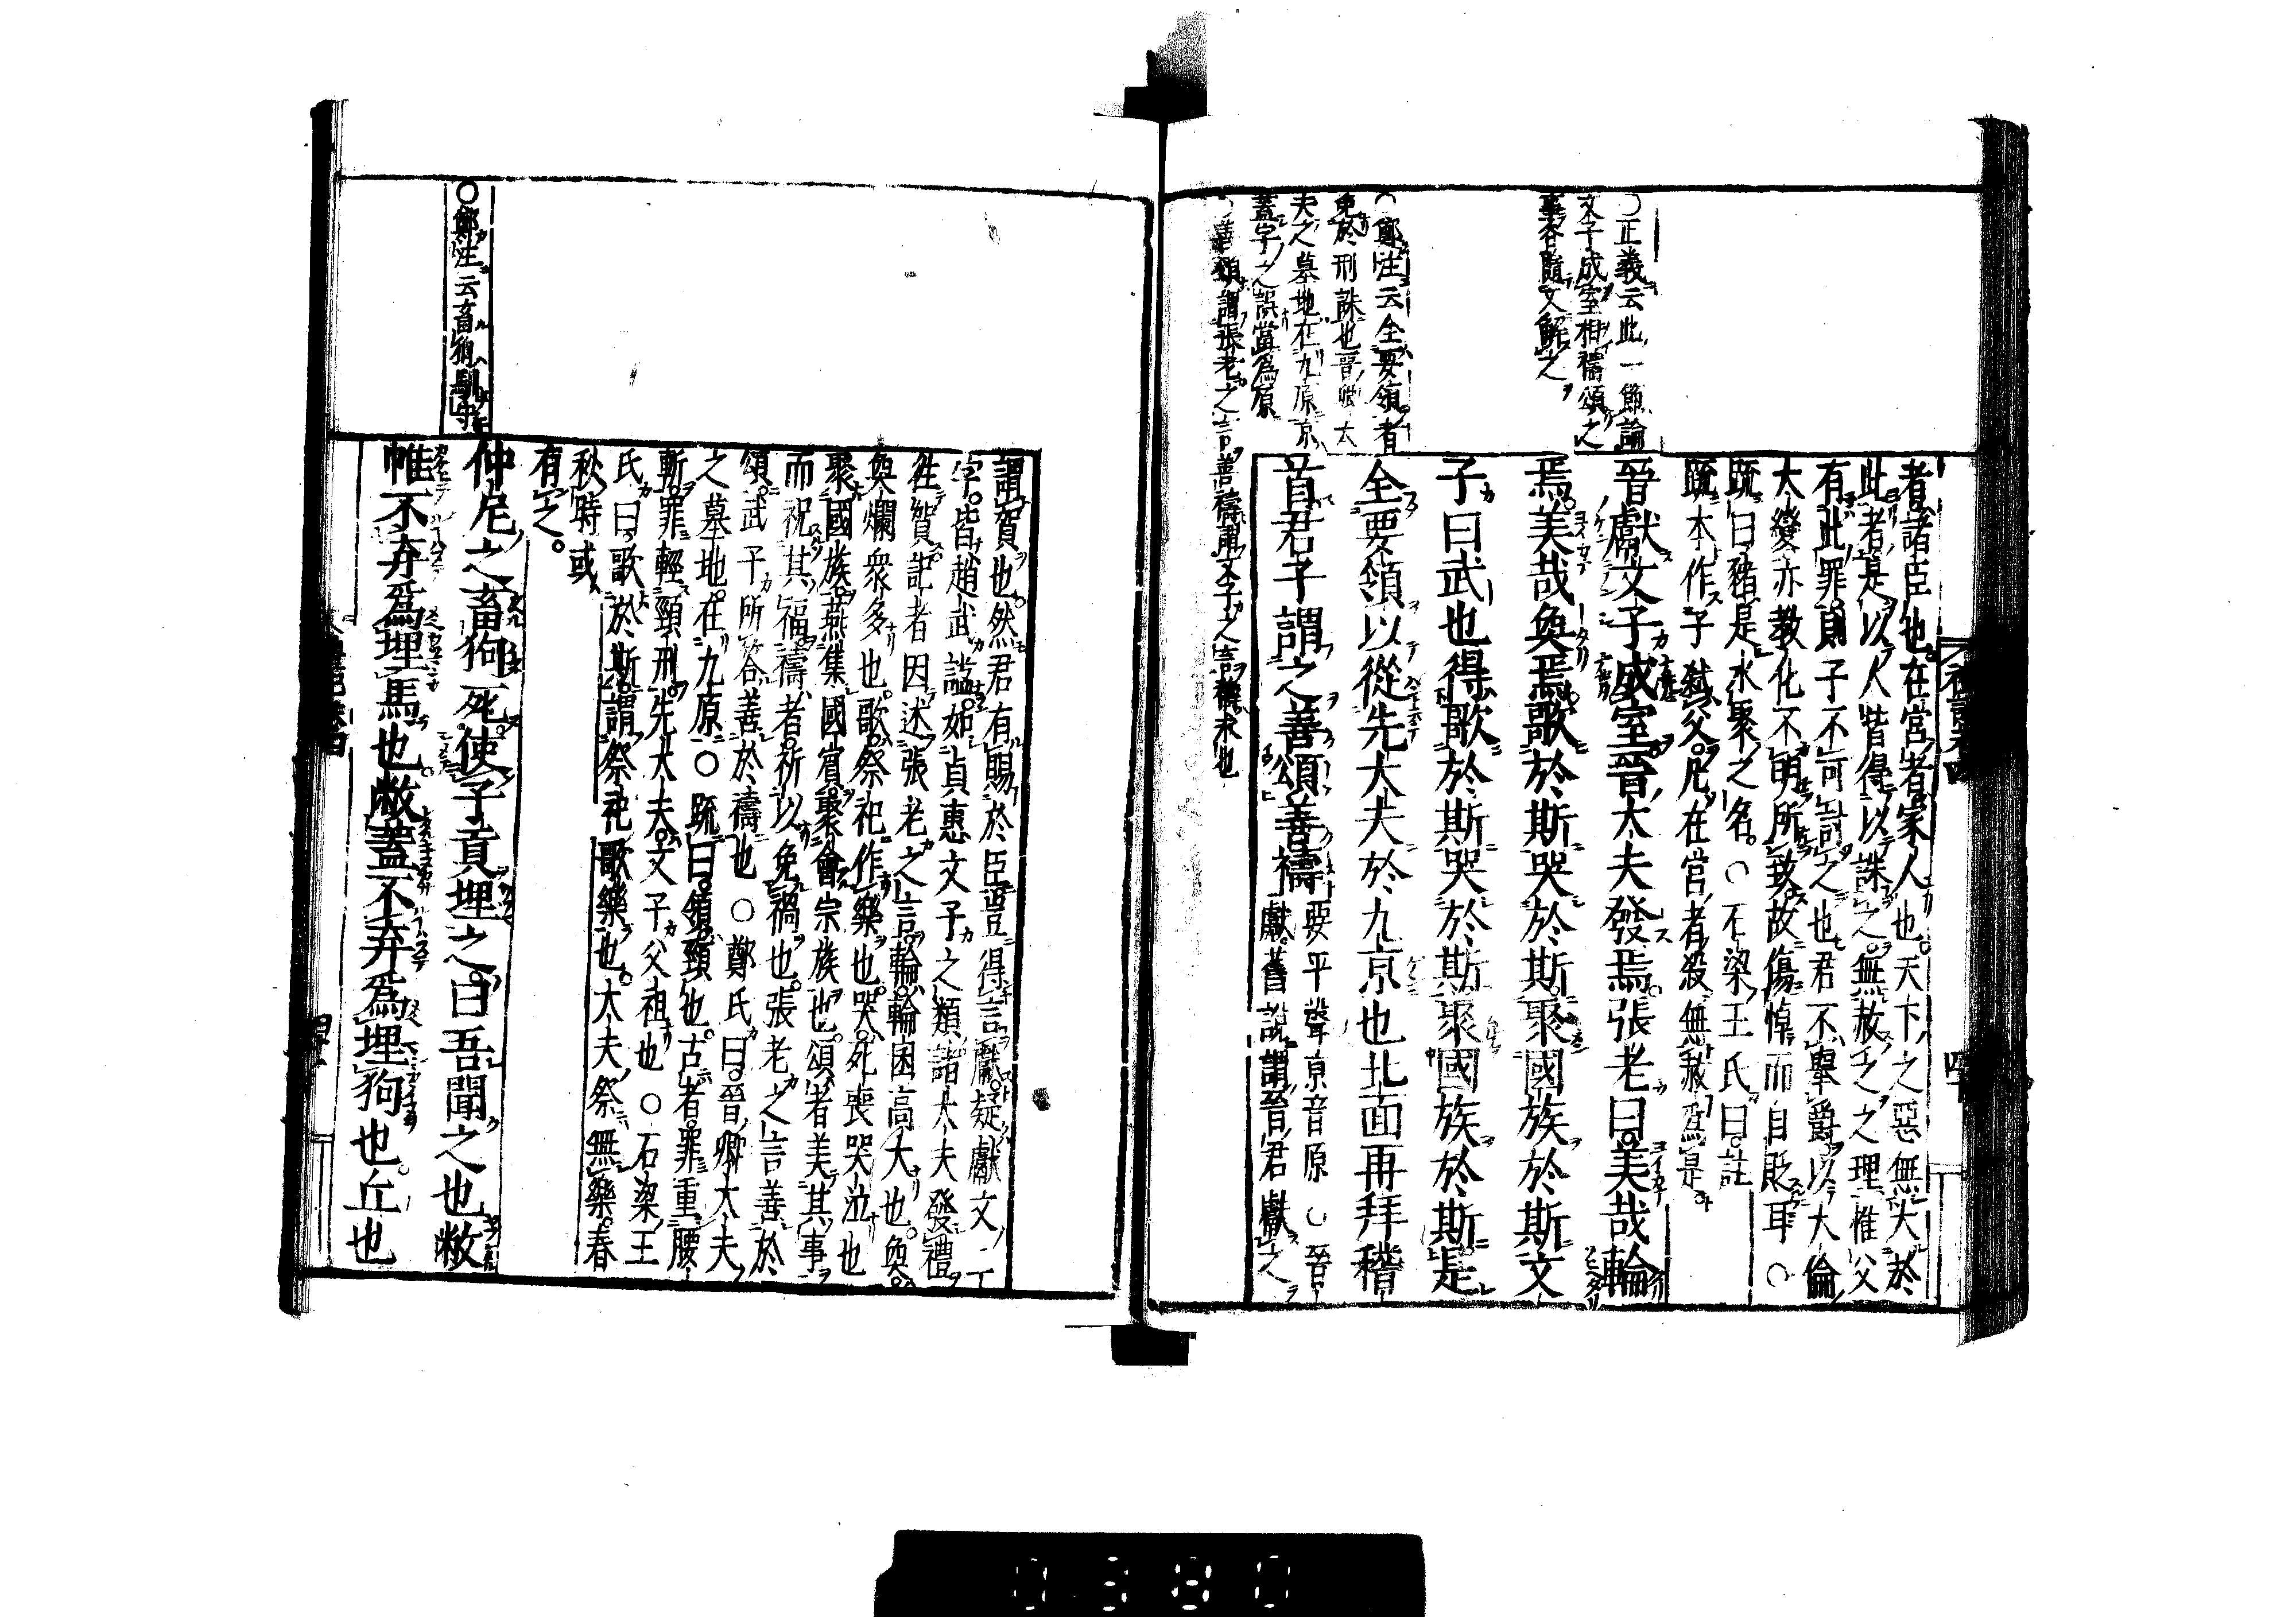 ○正義云此一節論
文子成室相禱頌之
事各隨文解之
○鄭注云全要領者
免於刑誅也晉卿大
夫之墓地在九原京
蓋字之誤當為原
○善頌謂張老之言善禱謂文子之言禱求也
者諸臣也在宮者家人也天下之惡無大於
此者是以人皆得以誅之無赦之之理惟父
有此罪則子不可討之也君不舉爵以大倫
大變亦教化不明所致故傷悼而自貶耳○
疏曰豬是水聚之名○石梁王氏曰註
疏本作子弒父凡在宮者殺無赦為是
晉獻文子成室晉大夫發焉張老曰美哉輪
焉美哉奐焉歌於斯哭於斯聚國族於斯文
子曰武也得歌於斯哭於斯聚國族於斯是
全要領以從先大夫於九京也北面再拜稽
首君子謂之善頌善禱
要平聲京音原○晉
獻舊說謂晉君獻之
謂賀也然君有賜於臣豈得言獻疑獻文二
字皆趙武謚如貞惠文子之類諸大夫發禮
往賀記者因述張老之言輪輪囷高大也奐
奐爛衆多也歌祭祀作樂也哭死喪哭泣也
聚國族燕集國賓聚會宗族也頌者美其事
而祝其福禱者祈以免禍也張老之言善於
頌武子所答善於禱也○鄭氏曰晉卿大夫
之墓地在九原○疏曰領頸也古者罪重腰
斬罪輕頸刑先大夫文子父祖也○石梁王
氏曰歌於斯謂祭祀歌樂也大夫祭無樂春
秋時或
有之
○鄭注云畜狗馴守
仲尼之畜狗死使子貢埋之曰吾聞之也敝
帷不弃為埋馬也敝蓋不弃為埋狗也丘也